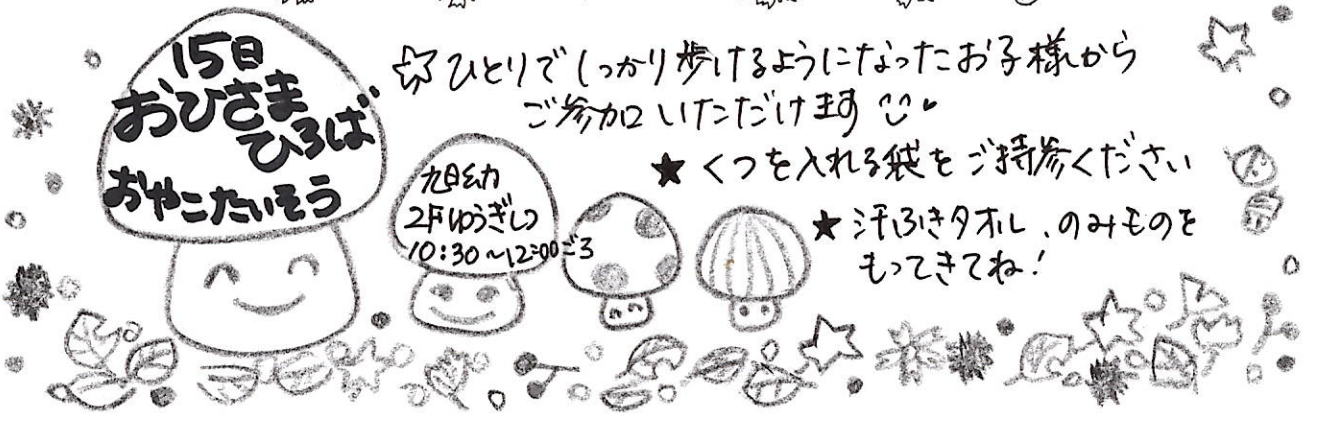 15日
おひさま
ひろば
おやこたいそう
旭幼
2Fゆうぎしつ
10:30～12:00ごろ
☆ひとりでしっかり歩けるようになったお子様から
ご参加いただけます
★くつを入れる袋をご持参ください
★汗ふきタオル、のみものを
もってきてね！